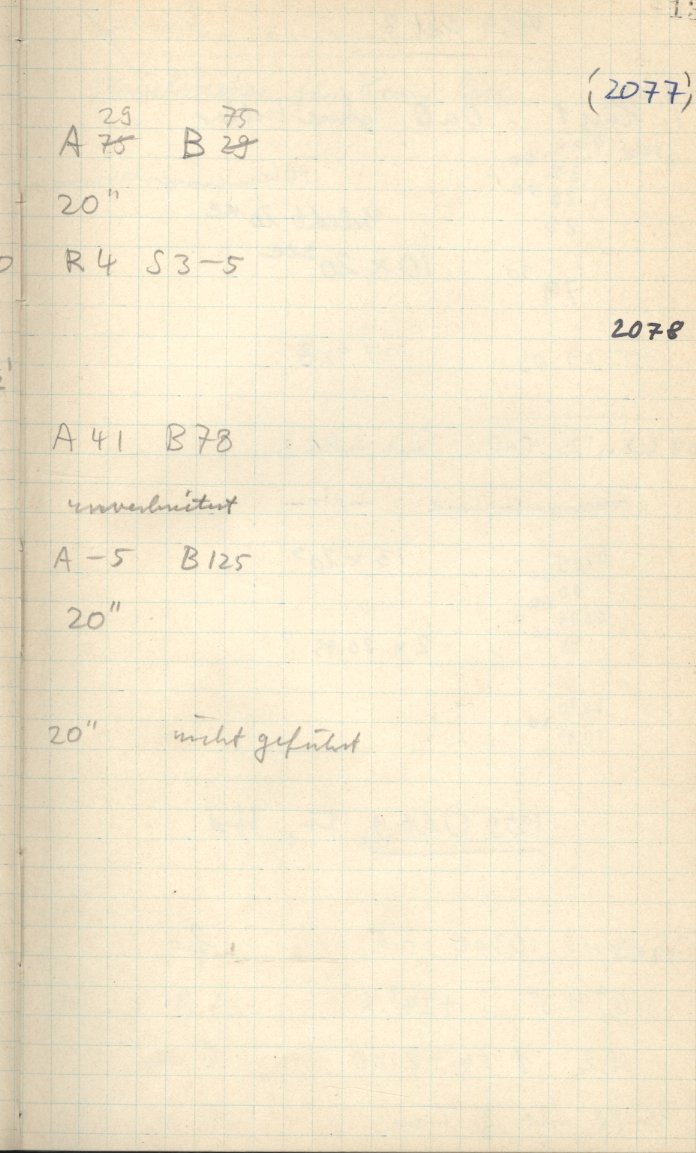 (2077)
29 75
A 75 B 29
20"
R4 S3-5
2078
A 41 B 78
unverbreitert
A -5 B 125
20"
20" nicht geführt